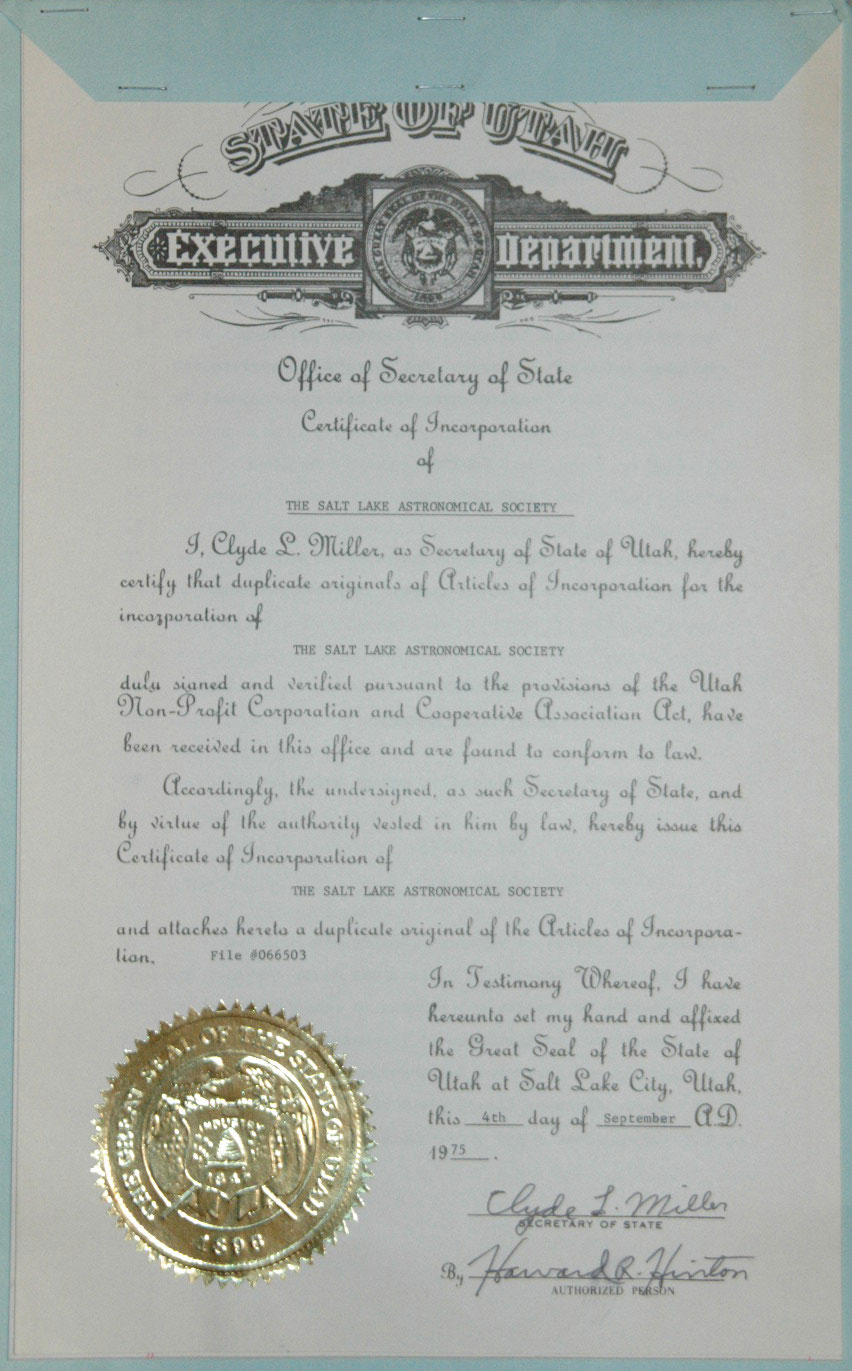 STATE OF UTAH
EXECUTIVE Department.
THE GREAT SEAL OF THE STATE OF UTAH
1896
Office of Secretary of State
Certificate of Incorporation
of
THE SALT LAKE ASTRONOMICAL SOCIETY
I, Clyde L. Miller, as Secretary of State of Utah, hereby
certify that duplicate originals of Articles of Incorporation for the
incorporation of
THE SALT LAKE ASTRONOMICAL SOCIETY
duly signed and verified pursuant to the provisions of the Utah
Non-Profit Corporation and Cooperative Association Act, have
been received in this office and are found to conform to law.
Accordingly, the undersigned, as such Secretary of State, and
by virtue of the authority vested in him by law, hereby issue this
Certificate of Incorporation of
THE SALT LAKE ASTRONOMICAL SOCIETY
and attaches hereto a duplicate original of the Articles of Incorpora-
tion. File #066503
In Testimony Whereof, I have
hereunto set my hand and affixed
the Great Seal of the State of
Utah at Salt Lake City, Utah,
this 4th day of September A.D.
1975.
THE GREAT SEAL OF THE STATE OF UTAH
INDUSTRY
1847
1896
Clyde L. Miller
SECRETARY OF STATE
By Howard R. Hinton
AUTHORIZED PERSON